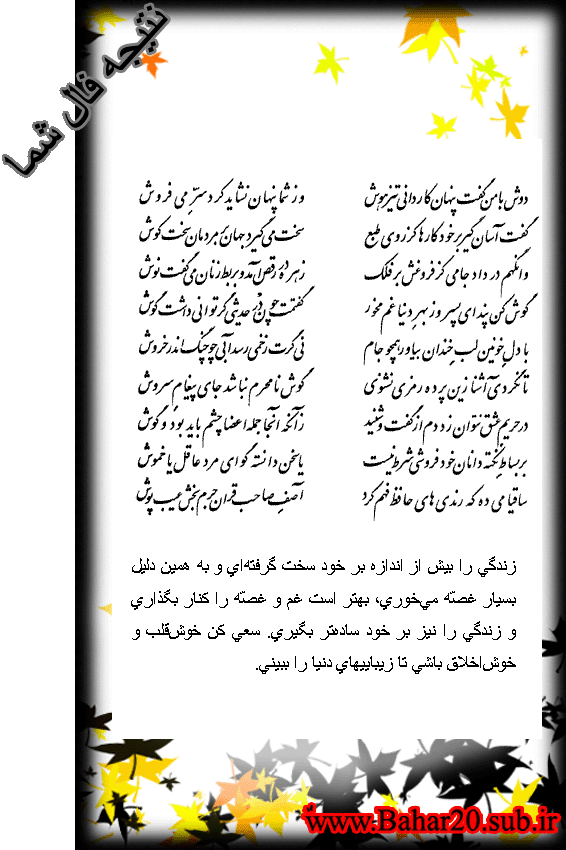 نتیجه فال شما
دوش با من گفت پنهان کاردانی تیزهوش وز شما پنهان نشاید کرد سرّ می فروش
گفت آسان گیر بر خود کارها کز روی طبع سخت می‌گیرد جهان بر مردمان سخت کوش
وانگهم در داد جامی کز فروغش بر فلک زهره در رقص آمد و بربط زنان می‌گفت نوش
گوش کن پند ای پسر وز بهر دنیا غم مخور گفتمت چون در حدیثی گر توانی داشت گوش
با دل خونین لب خندان بیاور همچو جام نی گرت زخمی رسد آیی چو چنگ اندر خروش
تا نگردی آشنا زین پرده رمزی نشنوی گوش نامحرم نباشد جای پیغام سروش
در حریم عشق نتوان زد دم از گفت و شنید زآنکه آنجا جمله اعضا چشم باید بود و گوش
بر بساط نکته دانان خودفروشی شرط نیست یا سخن دانسته گو ای مرد عاقل یا خموش
ساقیا می ده که رندی های حافظ فهم کرد آصف صاحب قران جرم بخش عیب پوش
زندگي را بيش از اندازه بر خود سخت گرفته‌اي و به همين دليل
بسيار غصّه مي‌خوري، بهتر است غم و غصّه را کنار بگذاري
و زندگي را نيز بر خود ساده‌تر بگيري. سعي کن خوش‌قلب و
خوش‌اخلاق باشي تا زيباييهاي دنيا را ببيني.
www.Bahar20.sub.ir